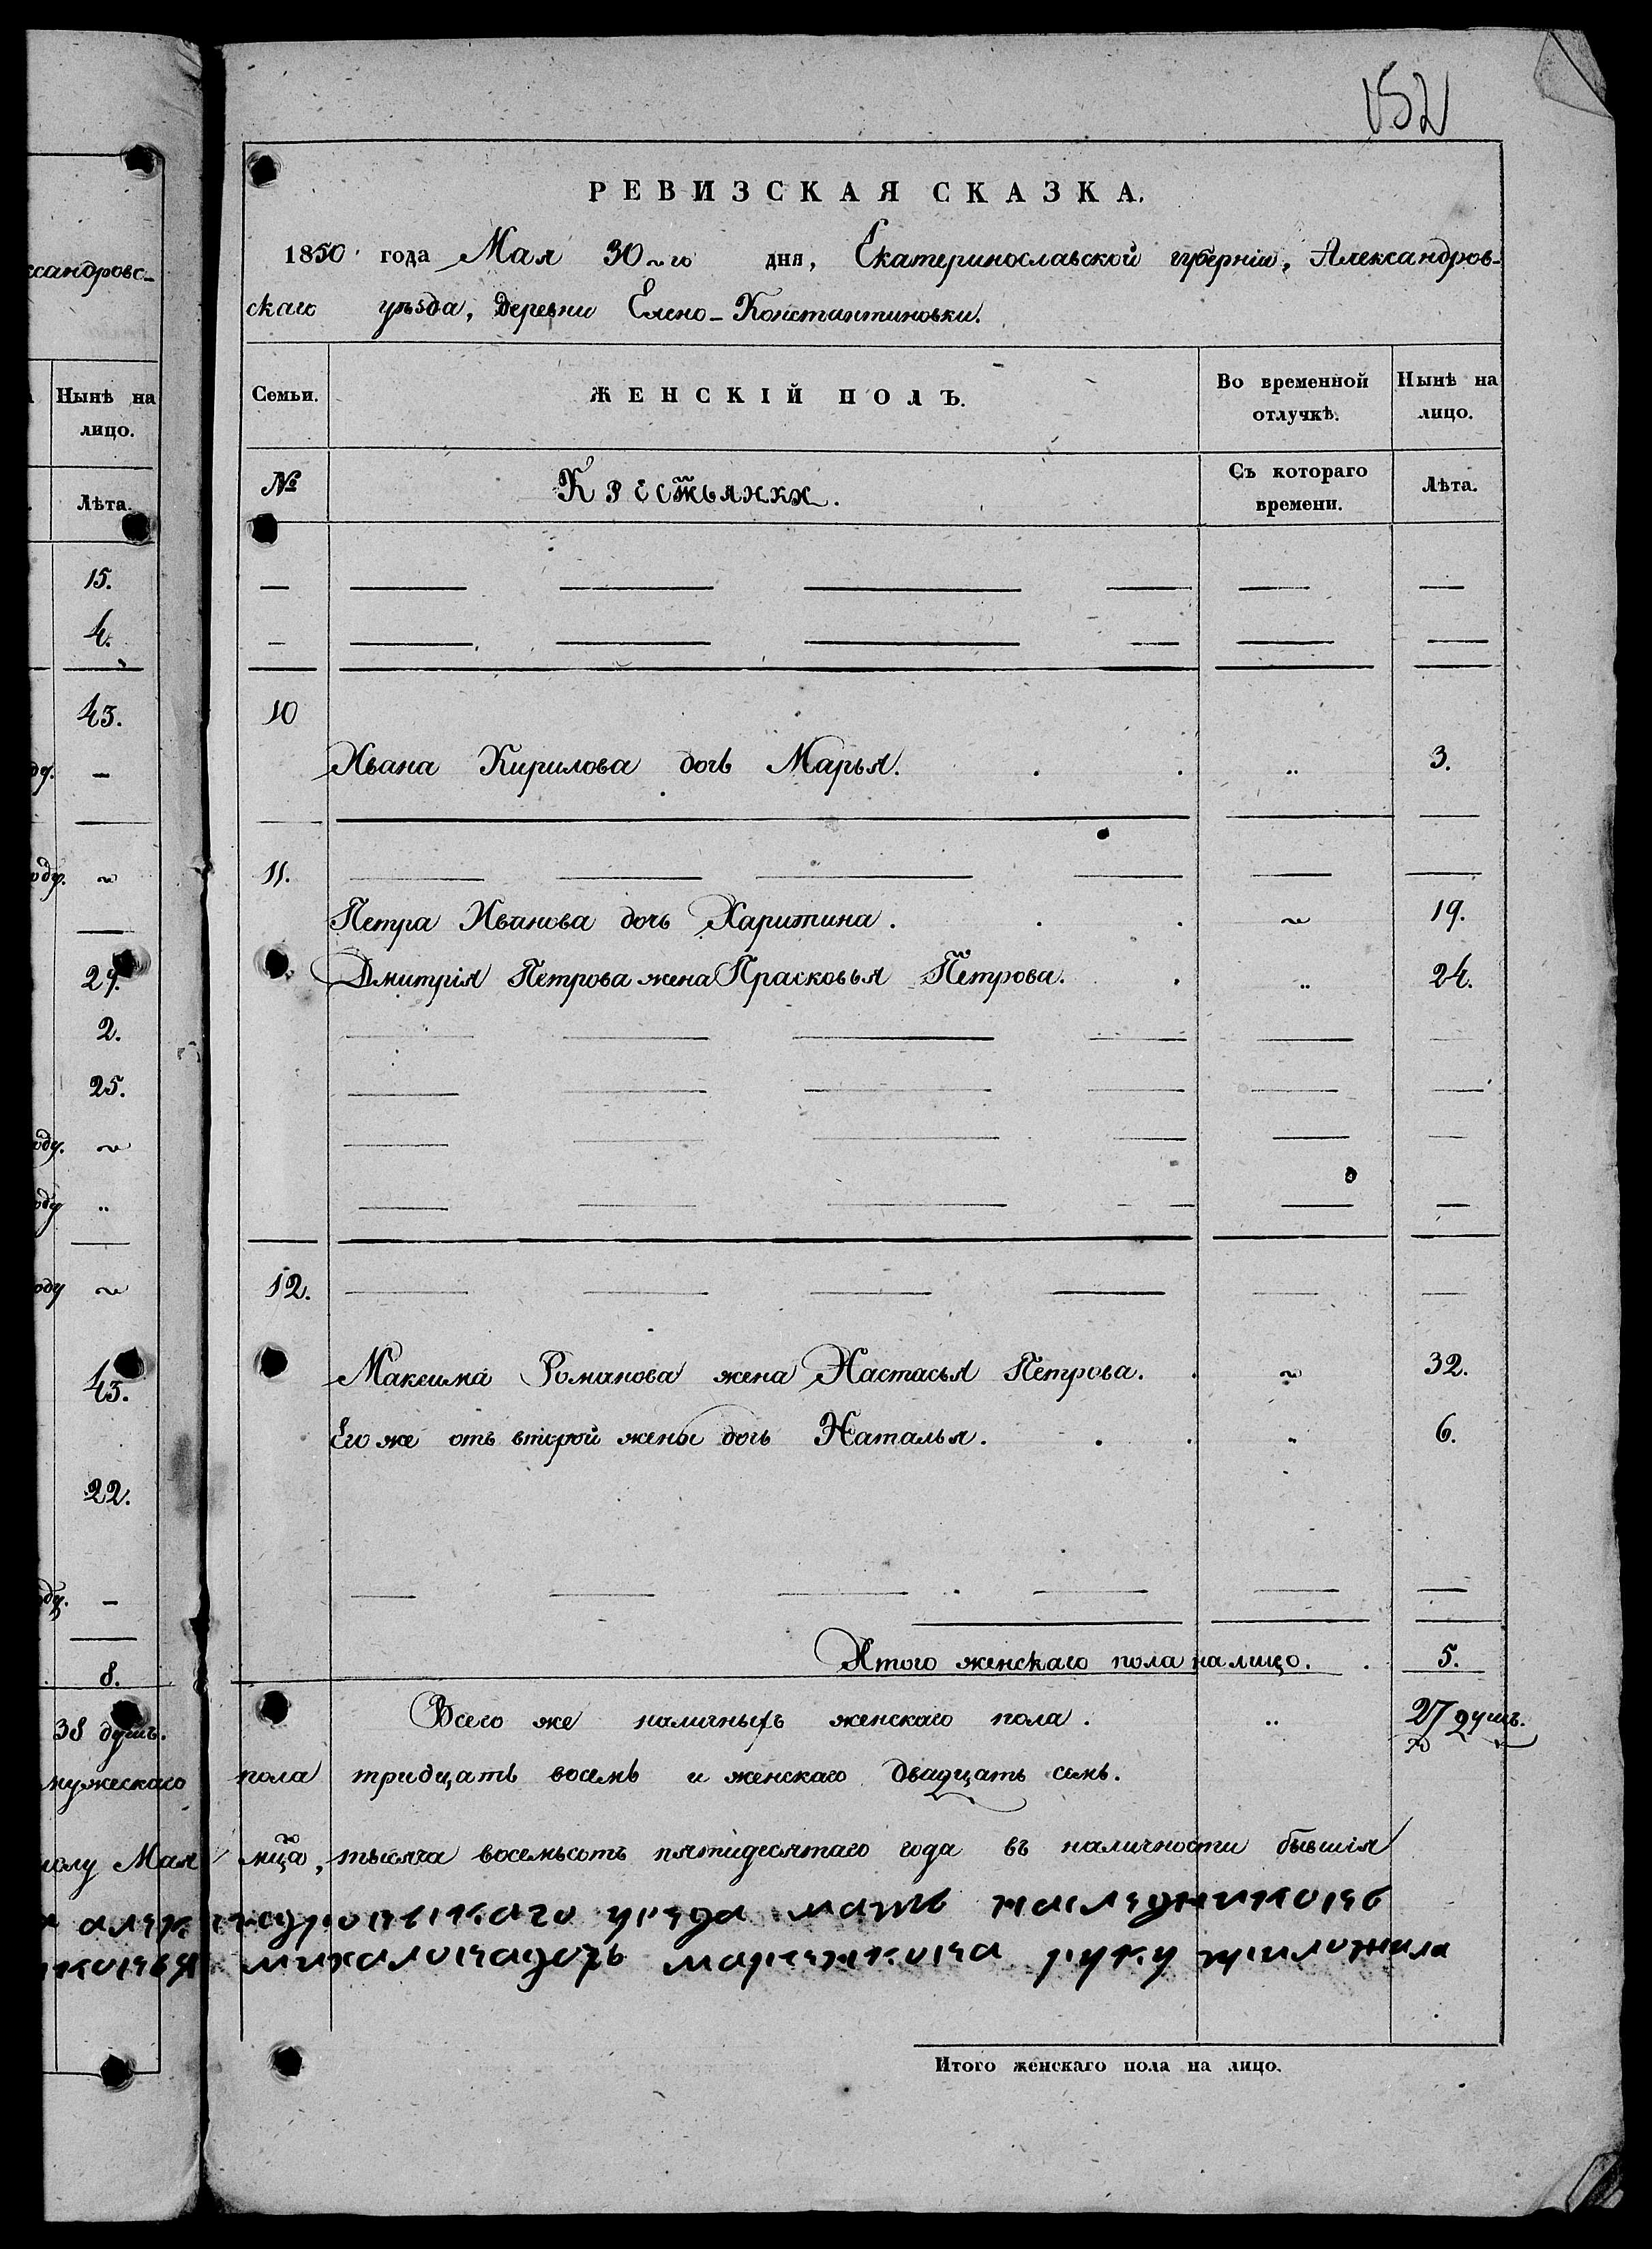 152
РЕВИЗСКАЯ СКАЗКА.
1850 года Мая 30го дня, Екатеринославской губерніи, Александров-
скаго уѣзда, деревни Елено-Константиновки.
ксандровс-
Семьи.
ЖЕНСКІЙ ПОЛЪ.
Во временной отлучкѣ.
Нынѣ на лицо.
Нынѣ на лицо.
№
Крестьянки.
Съ котораго времени.
Лѣта.
Лѣта.
15.
4.
43.
10
Ивана Кирилова дочь Марья. 3.
11.
Петра Иванова дочь Харитина. 19.
Дмитрія Петрова жена Прасковья Петрова. 24.
2.
25.
12.
43.
Максима Романова жена Настасья Петрова. 32.
Его же отъ второй жены дочь Наталья. 6.
22.
Итого женскаго пола на лицо. 5.
8.
Всего же наличныхъ женскаго пола. 27 душъ.
38 душъ.
мужескаго пола тридцать восемь и женскаго двадцать семь.
Мая мца, тысяча восемьсотъ пятидесятаго года въ наличности бывшія
уезда
руку приложила
Итого женскаго пола на лицо.